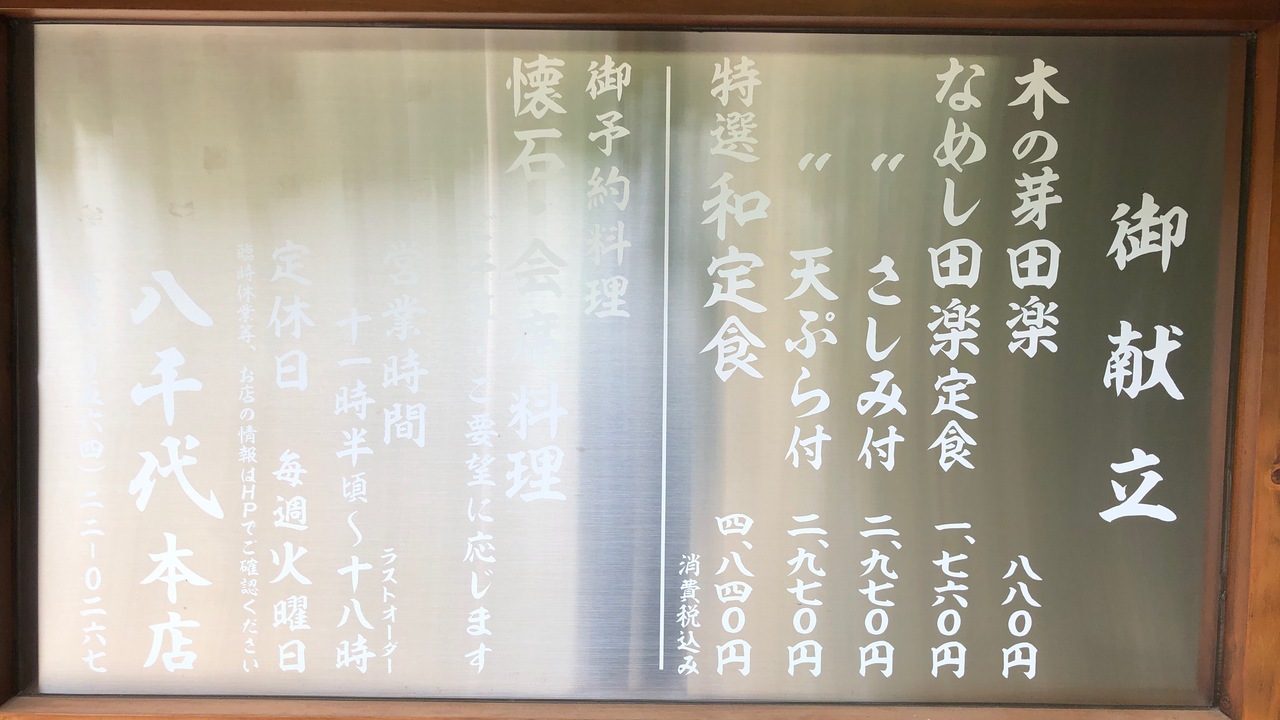 御献立
木の芽田楽 八八〇円
なめし田楽定食 一、七六〇円
〃 さしみ付 二、九七〇円
〃 天ぷら付 二、九七〇円
特選和定食 四、八四〇円
消費税込み
御予約料理
懐石・会席料理
ご要望に応じます
営業時間
十一時半頃〜十八時 ラストオーダー
定休日 毎週火曜日
臨時休業等、お店の情報はHPでご確認ください
八千代本店
五六四)二二-〇二六七